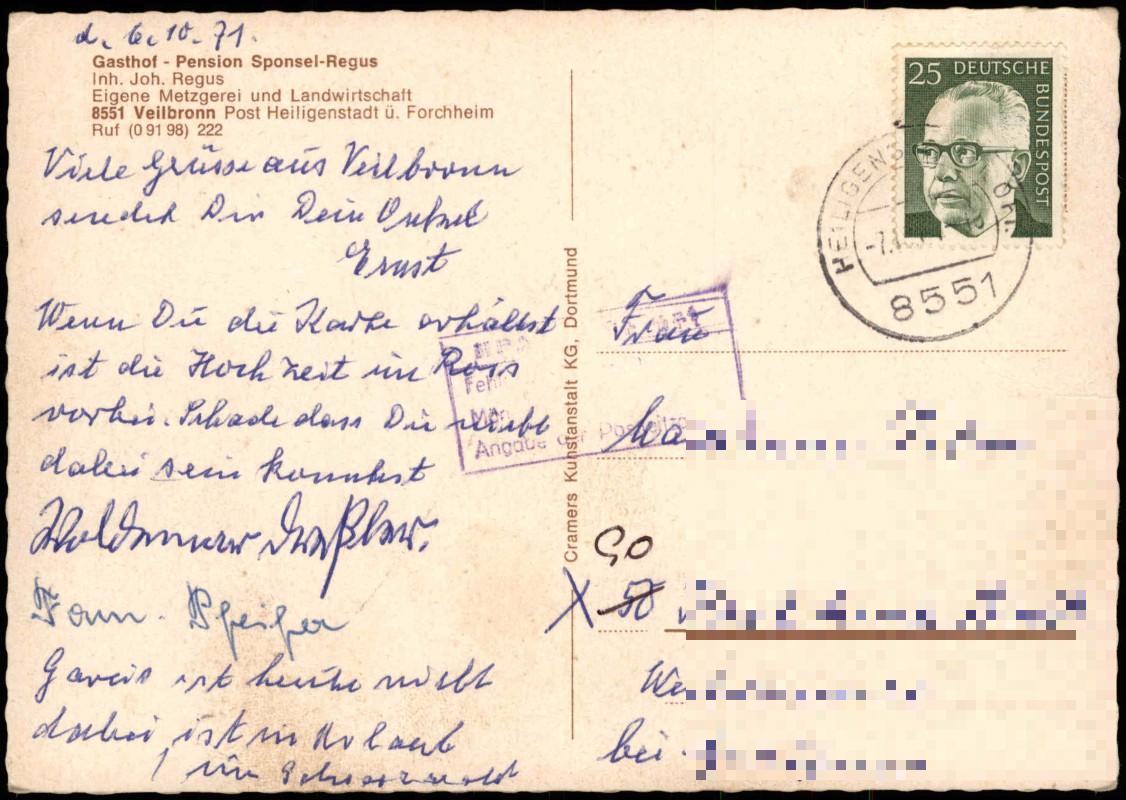 d. 6.10.71.
Gasthof - Pension Sponsel-Regus
Inh. Joh. Regus
Eigene Metzgerei und Landwirtschaft
8551 Veilbronn Post Heiligenstadt ü. Forchheim
Ruf (0 91 98) 222
Viele Grüsse aus Veilbronn
sendet Dir Dein Onkel
Ernst
Wenn Du die Karte erhältst
ist die Hochzeit im
vorbei. Schade dass Du nicht
dabei sein konntest
Woldemar
Fam. Pfeifer
ist heute nicht
dabei, ist in Urlaub
im Schwarzwald
Cramers Kunstanstalt KG, Dortmund
25 DEUTSCHE
BUNDESPOST
HEILIGEN
-7.
8551
Angabe der
Frau
90
50
bei